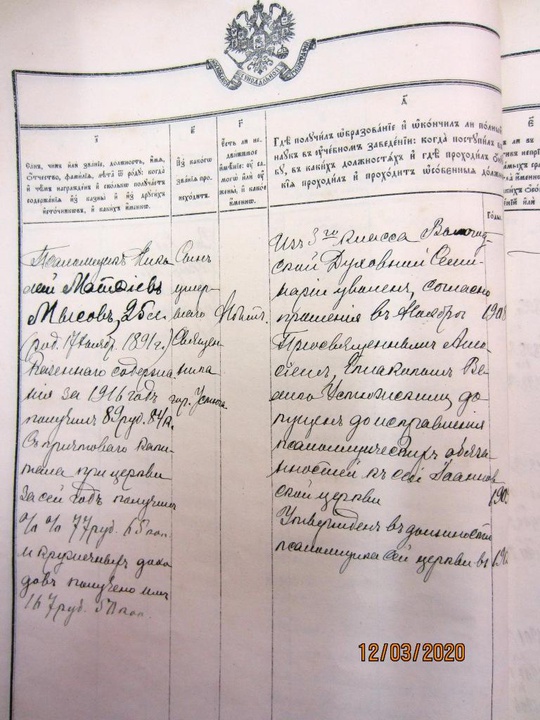 а҃
в҃
г҃
д҃
Санъ, чинъ или званіе, должность, имя,
отчество, фамилія, лѣта ѿ роду; когда
и чѣмъ награжденъ и сколько получаетъ
содержанія изъ казны и изъ другихъ
источниковъ, и какихъ именно.
Изъ какого
званія про-
исходитъ.
Есть ли не-
движимое
имѣніе: у са-
мого или у
жены, и какое
именно.
Гдѣ получилъ образованіе и окончилъ ли полный
наукъ въ учебномъ заведеніи; когда поступилъ
бу, въ какихъ должностяхъ и гдѣ проходилъ
кія проходилъ и проходитъ особенныя должн
Годы.
Псаломщикъ Нико
лай Матѳіевъ
Мысовъ, 25 л.
(род. 17 ноябр. 1891 г.)
Казеннаго содержа
нія за 1916 годъ
получилъ 89 руб. 84 к.
Съ причтоваго капи
тала при церкви
за сей годъ получилъ
% % 77 руб. 65 коп.
и кружечныхъ дохо
довъ получено имъ
167 руб. 50 коп.
Сынъ
умер
шаго
Священ
ника
гор. Устюга.
Нѣтъ.
Изъ 3го класса Вологод
ской Духовной Семи
наріи уволенъ, согласно
прошенія въ Ноябрѣ
Преосвященнымъ Алек
сіемъ, Епископомъ Ве
ликоустюжскимъ до
пущенъ до исправленія
псаломщическихъ обяза
нностей къ сей Іоаннов
ской церкви
Утвержденъ въ должности
псаломщика сей церкви въ
12/03/2020